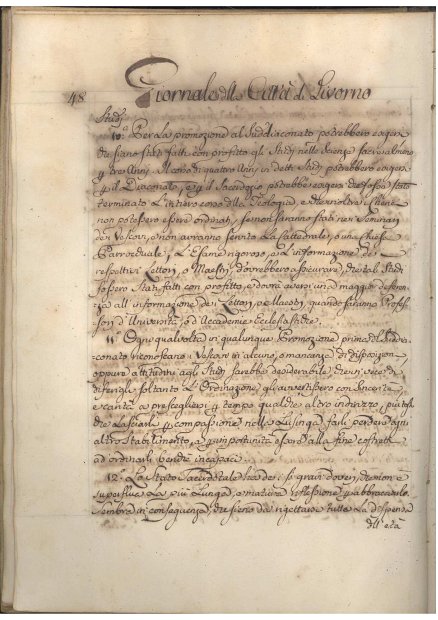 48
Giornale della Città di Livorno
Studj
10.° Per la promozione al Suddiaconato potrebbero esigere
che siano stati fatti con profitto gli Studj nelle Scienze Sacre almeno
p tre Anni
p il Diaconato, e p il Sacerdozio potrebbe esigersi che fosse stato
terminato l'intiero corso della Teologia, e che
non potessero essere ordinati, se non saranno stati nei Seminarj
dei Vescovi, e non avranno servito la Cattedrale, o una Chiesa
Parrocchiale; L'Esame rigoroso, e l'informazione dei
respettivi Lettori, o Maestri, dovrebbero assicurare, che tali Studj
fossero stati fatti con profitto, e dovrà aversi una maggior deferen=
za all'informazione dei Lettori, e Maestri, quando saranno Profes=
sori d'Università, od Accademie Ecclesiastiche.
11.° Ogni qualvolta in qualunque Promozione prima del Suddia=
conato riconoscano i Vescovi in alcuno, o mancanza di disposizioni,
oppure attitudini agli Studj sarebbe desiderabile che in vece
di differirgli soltanto l'Ordinazione gli avvertissero con sincerità,
e carità a prescegliersi p tempo qualche altro indirizzo, piuttosto
che lasciarli p compassione nella lusinga farli perdere ogni
altro Stabilimento, e p importunità essere alla fine costretti
ad ordinarli benchè incapaci.
12.° Lo Stato Sacerdotale ha dei sì gran doveri, che non è
superflua la più lunga, e matura riflessione p abbracciarlo.
Sembra in conseguenza, che siano da rigettarsi tutte le dispense
dell'età